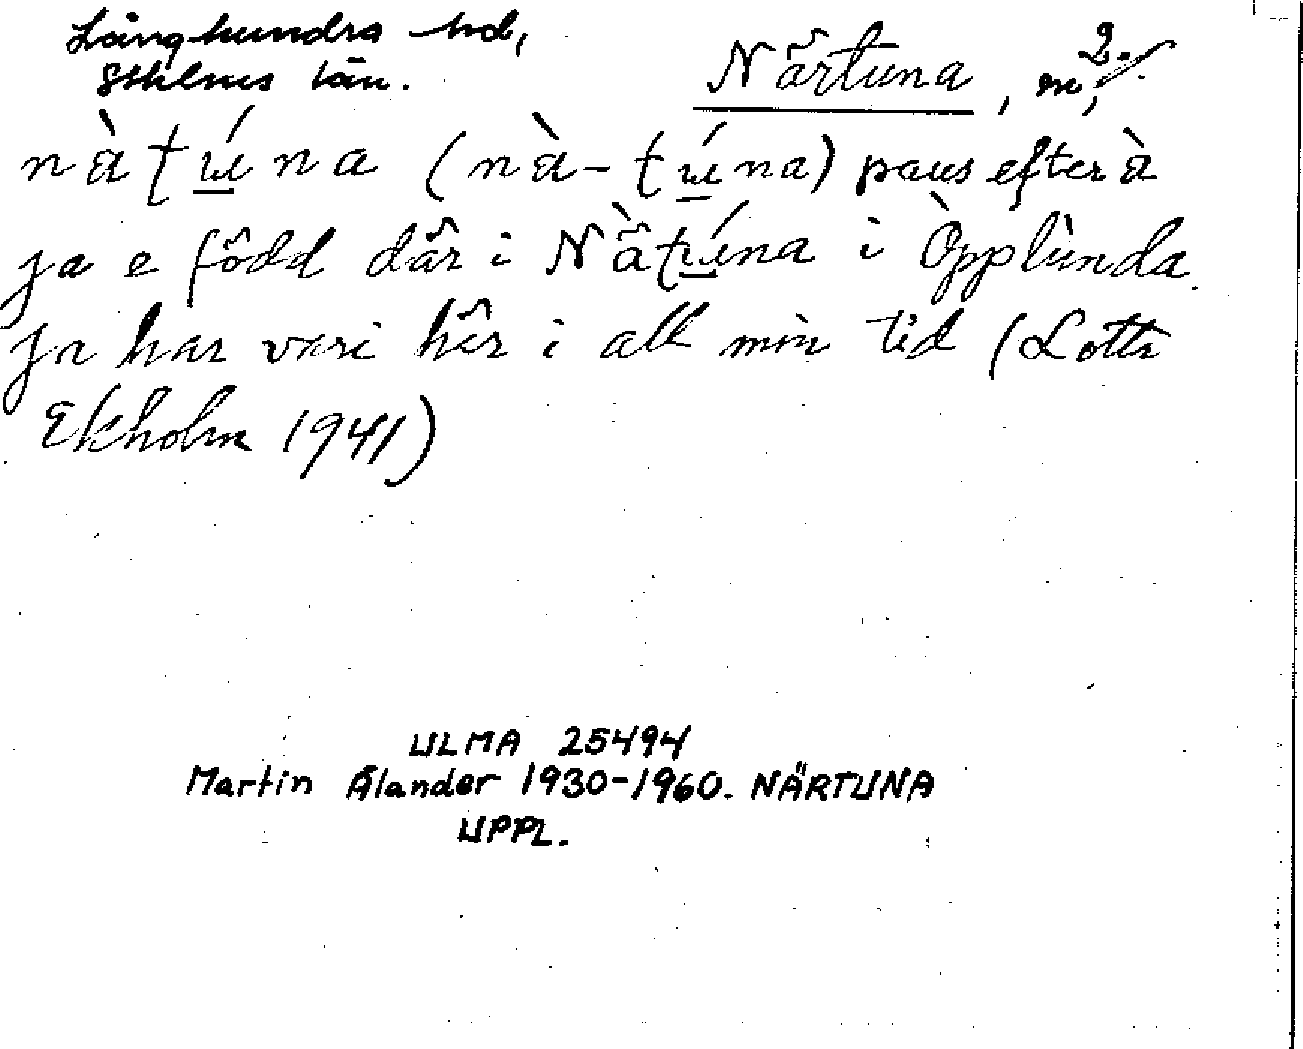 Långhundra hd,
Sthlms län.
Närtuna, sn, 2.
nä̀tú̲na (nä̀-tú̲na) paus efter ä̀
ja e född där i Nä̀tú̲na i Òpplùnda.
Ja har vari här i all min tid (Lotta
Ekholm 1941)
ULMA 25494
Martin Ålander 1930-1960. NÄRTUNA
UPPL.